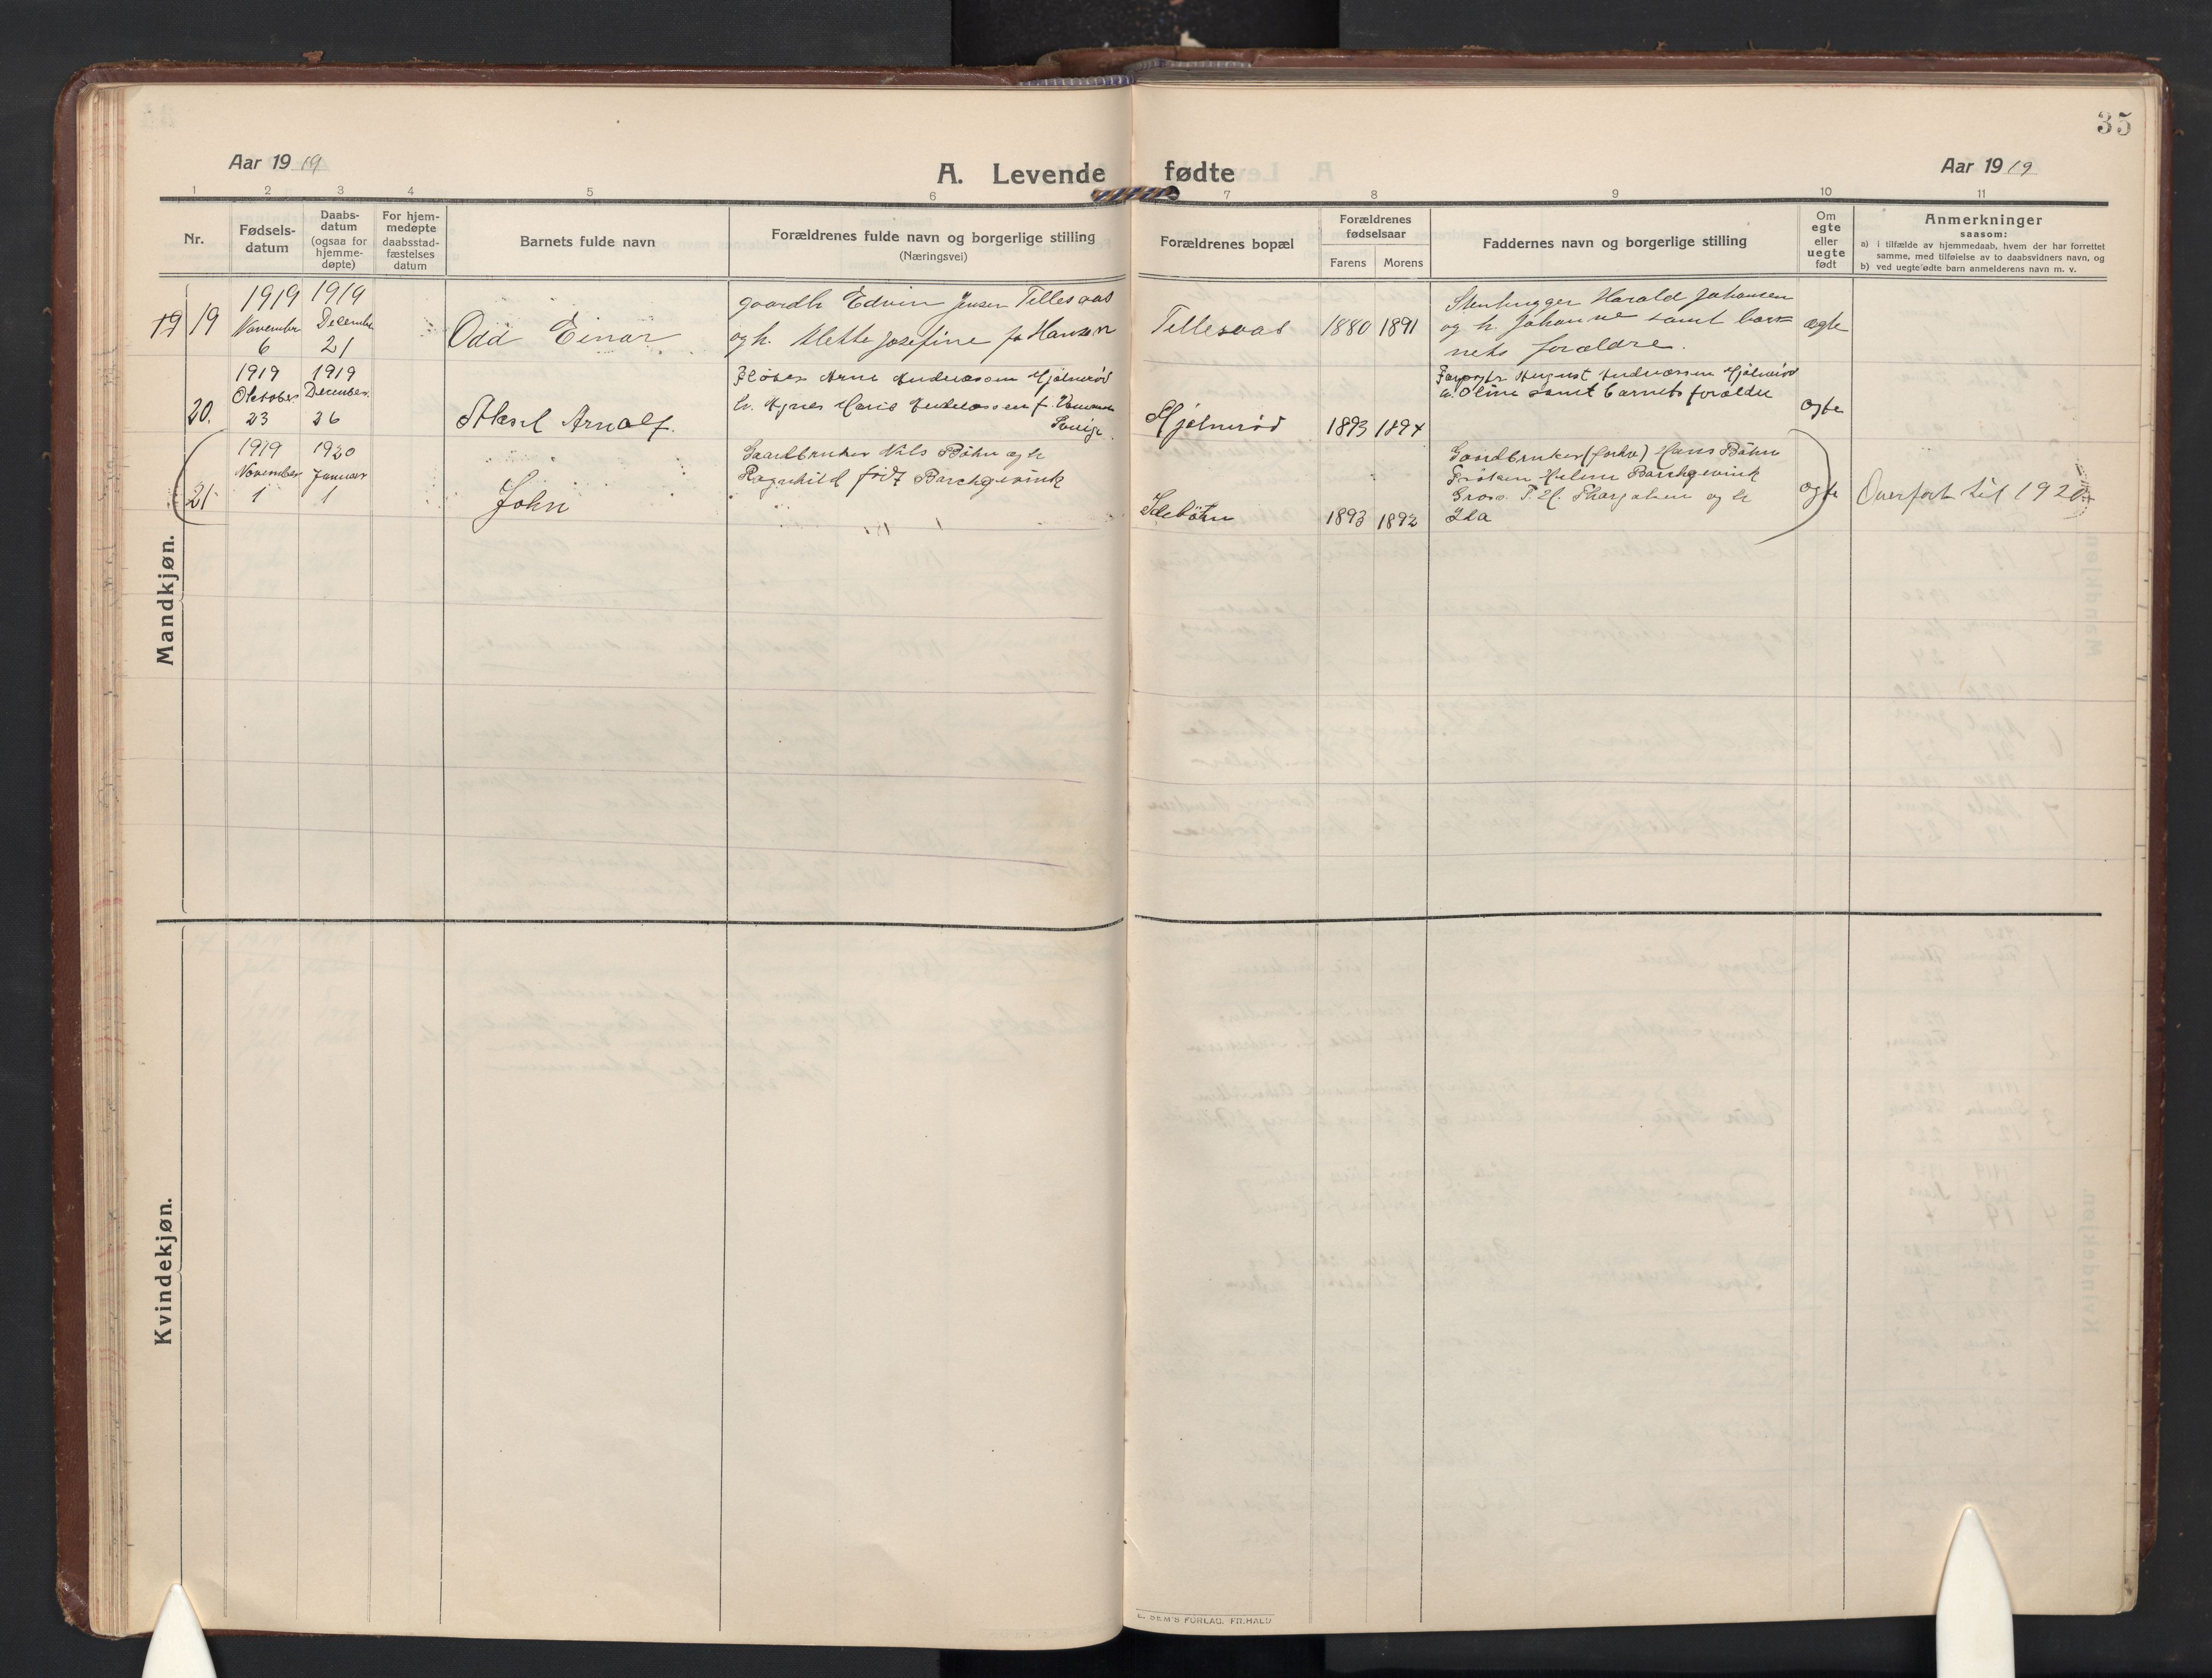 35
Aar 1919
A. Levende fødte
Aar 1919
1 2 3 4 5 6 7 8 9 10 11
Nr.
Fødsels-
datum
Daabs-
datum
(ogsaa for
hjemme-
døpte)
For hjem-
medøpte
daabsstad-
fæstelses
datum
Barnets fulde navn
Forældrenes fulde navn og borgerlige stilling
(Næringsvei)
Forældrenes bopæl
Forældrenes
fødselsaar
Farens Morens
Faddernes navn og borgerlige stilling
Om
egte
eller
uegte
født
Anmerkninger
saasom:
a) i tilfælde av hjemmedaab, hvem der har forrettet
samme, med tilføielse av to daabsvidners navn, og
b) ved uegtefødte barn anmelderens navn m. v.
Mandkjøn.
19 19
1919
November
6
1919
December
21
Odd Einar
gaardbr Edvin Jensen Tillesaas
og h. Mette Josefine f. Hansen
Tillesaas
1880 1891
Stenhugger Harald Johansen
og h. Johanne samt bar=
nets forældre.
ægte
20.
1919
Oktober
23
1919
December
26
Aksel Arnolf.
Fløter Arne Andreassen Hjølnerød
h. Agnes Marie Andreassen f.
Sverige.
Hjølnerød
1893 1894
August Andreassen Hjølnerød
h. Oline samt barnets forældre
egte
21
1919
November
1
1920
Januar
1
John
Gaardbruker Nils Bøhn og h
Ragnhild født Barchgevink
Idebøen
1893 1892
Gaardbruker Hans Bøhn
Frøken Helene Barchgevink
Gross. T. H. og h
Ida
egte
Overført til 1920
Kvindekjøn.
E. SEM'S FORLAG, FR.HALD